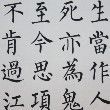 生當作人
死亦為鬼
至今思項
不肯過江